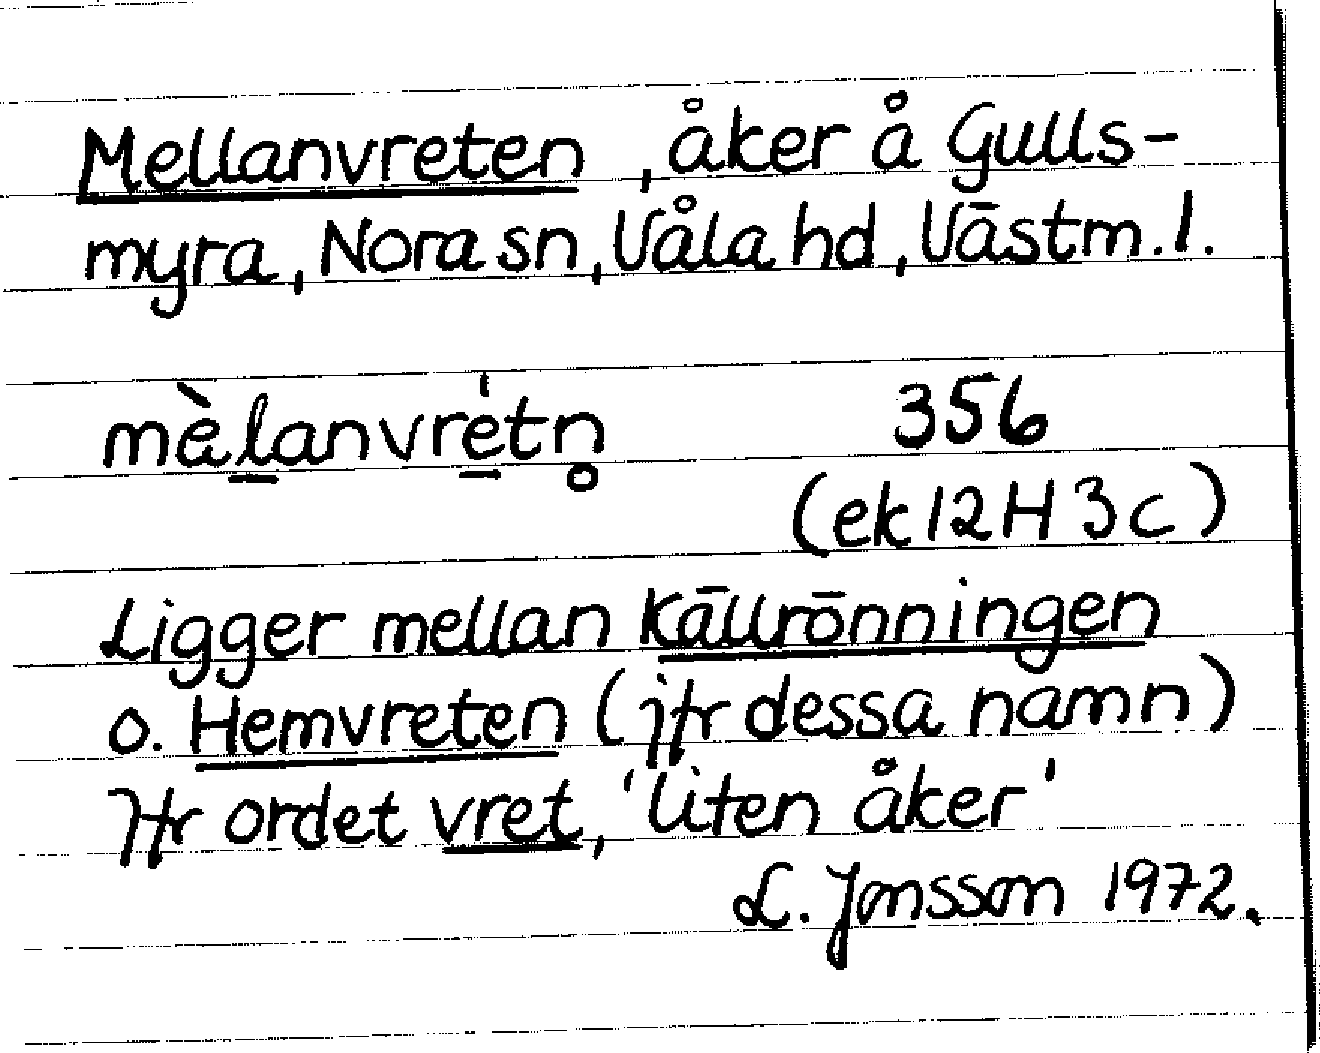 Mellanvreten, åker å Gulls-
myra, Nora sn, Våla hd, Västm. l.
mèl̲anvre̲̍tn̥ 356
(ek 12H 3c)
Ligger mellan Källrönningen
o. Hemvreten (jfr dessa namn)
Jfr ordet vret, 'liten åker'
L. Jonsson 1972.